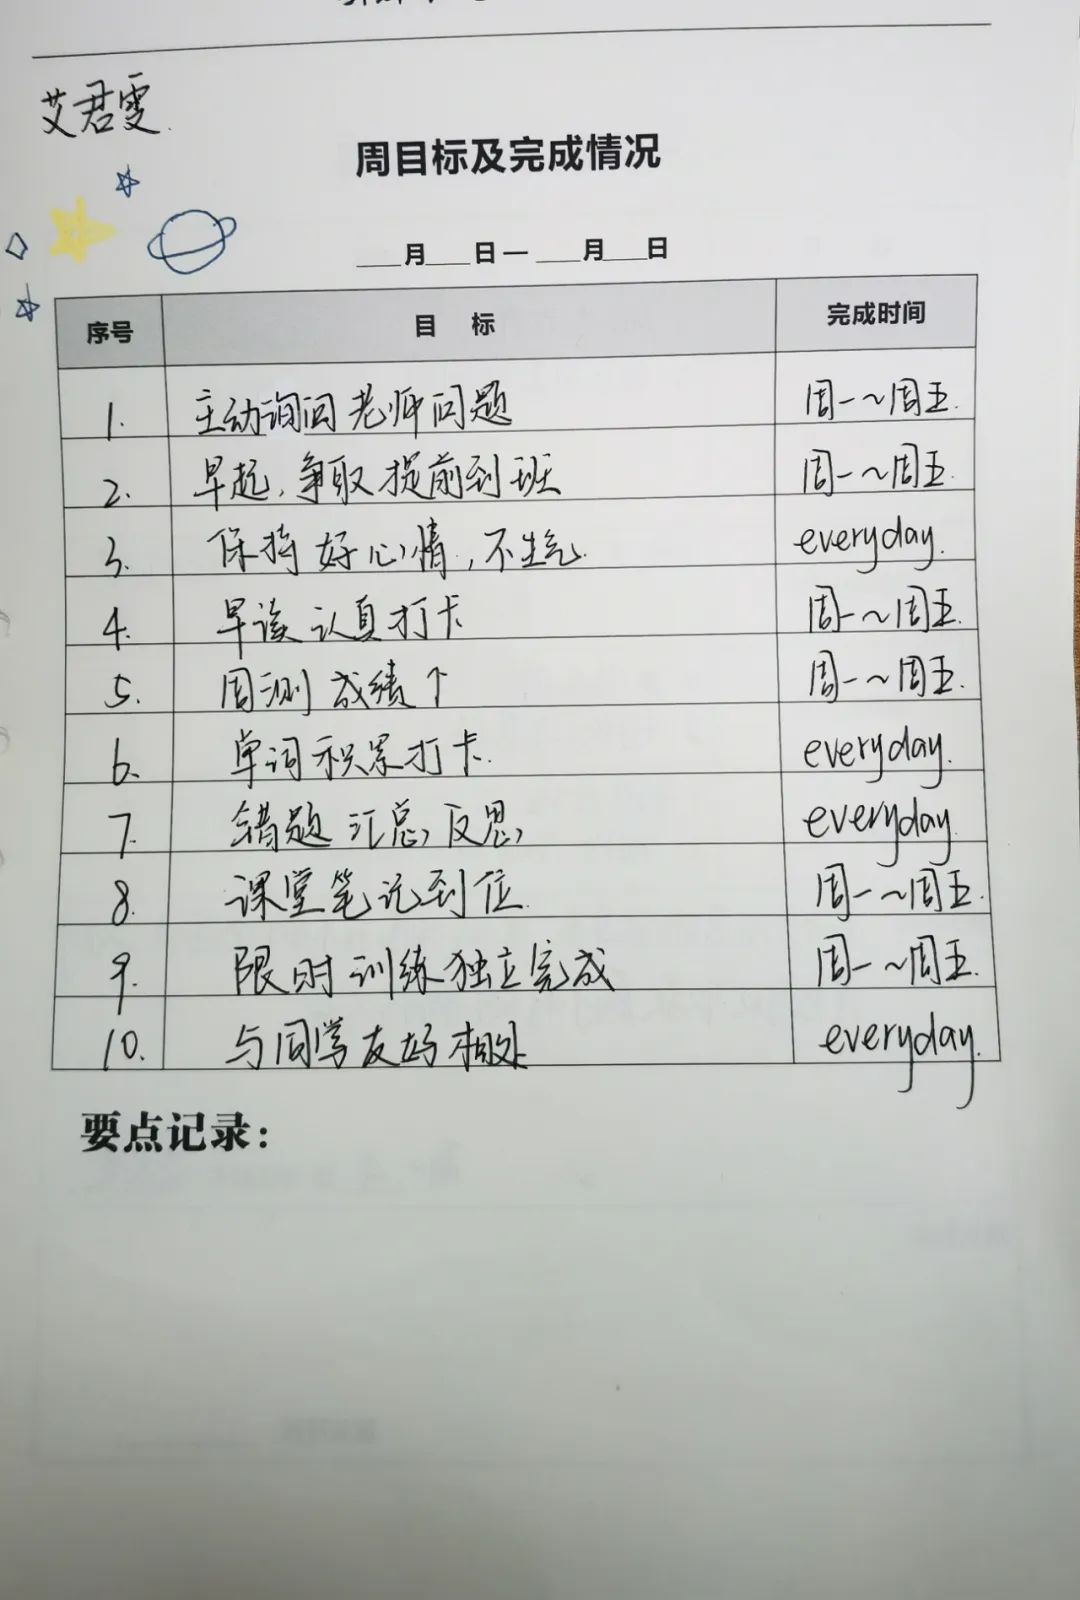 艾君雯.
周目标及完成情况
___月___日— ___月___日
序号 目 标 完成时间
1. 主动询问老师问题 周一~周五.
2. 早起,争取提前到班 周一~周五.
3. 保持好心情,不生气. everyday.
4. 早读认真打卡 周一~周五.
5. 周测成绩↑ 周一~周五.
6. 单词积累打卡. everyday.
7. 错题汇总,反思, everyday.
8. 课堂笔记到位. 周一~周五.
9. 限时训练独立完成 周一~周五.
10. 与同学友好相处 everyday.
要点记录: